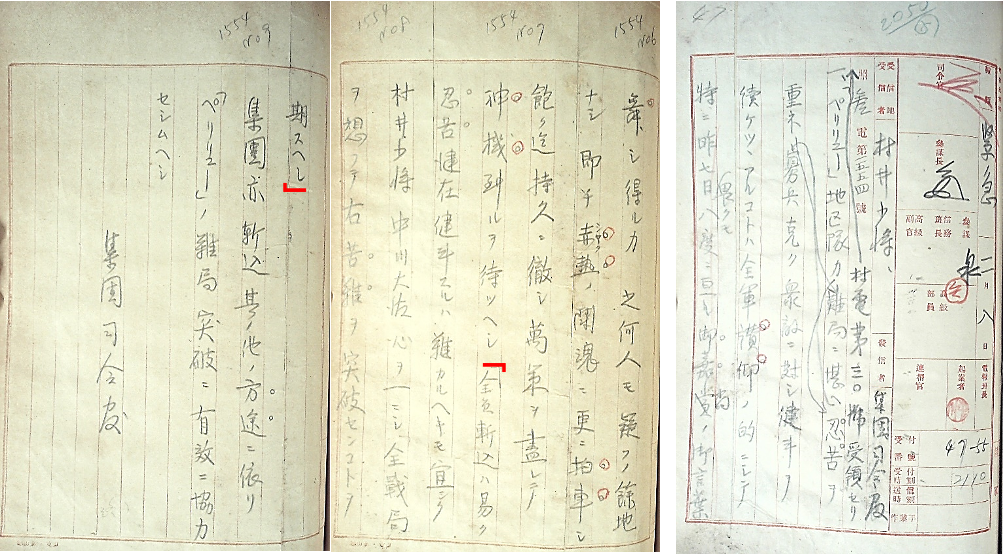 緊急
二月八日
司令官
参謀長
参謀
電報班長
起案者
発信者 集団司令部
47-55
2110
受信者 村井少将、
照電第一五五四號 村電第三〇號受領セリ
「ペリリュー」地区隊カ難局ニ堪ヘ忍苦ヲ
重ネ寡兵克ク衆敵ニ対シ健斗ヲ
続ケツツアルコトハ全軍讃仰ノ的ニシテ
特ニ昨七日八度ニ亘ル御嘉賞ノ御言葉
47
1554 No6
シ得ルカ 之何人モ疑フノ餘地
ナシ 即チ赤熱ノ闘魂ニ更ニ拍車シ
1554 No7
飽ク迄持久ニ徹シ萬策ヲ盡シテ
神機到ルヲ待ツヘシ 全員斬込ハ易ク
忍苦健在健斗スルハ難カルヘキモ宜シク
1554 No8
村井少将 中川大佐心ヲ一ニシ全戦局
ヲ想フテ右苦難ヲ突破センコトヲ
期スヘシ
1554 No9
集團亦斬込其ノ他ノ方途ニ依リ
「ペリリュー」ノ難局突破ニ有效ニ協力
セシムヘシ
集團司令部